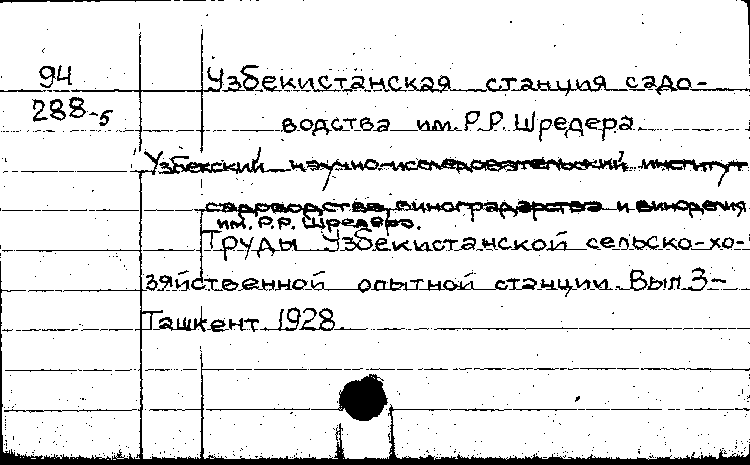 94
288-5
Узбекистанская станция садо-
водства им. Р.Р. Шредера.
Узбекский научно-исследовательский институт
садоводства, виноградарства и виноделия
им. Р.Р. Шредера.
Труды Узбекистанской сельско-хо-
зяйственной опытной станции. Вып. 3-
Ташкент. 1928.